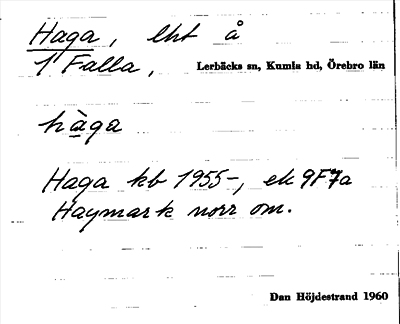 Haga, lht å
1 Falla, Lerbäcks sn, Kumla hd, Örebro län
hàga
Haga kb 1955-, ek 9F7a
Haymark norr om.
Dan Höjdestrand 1960